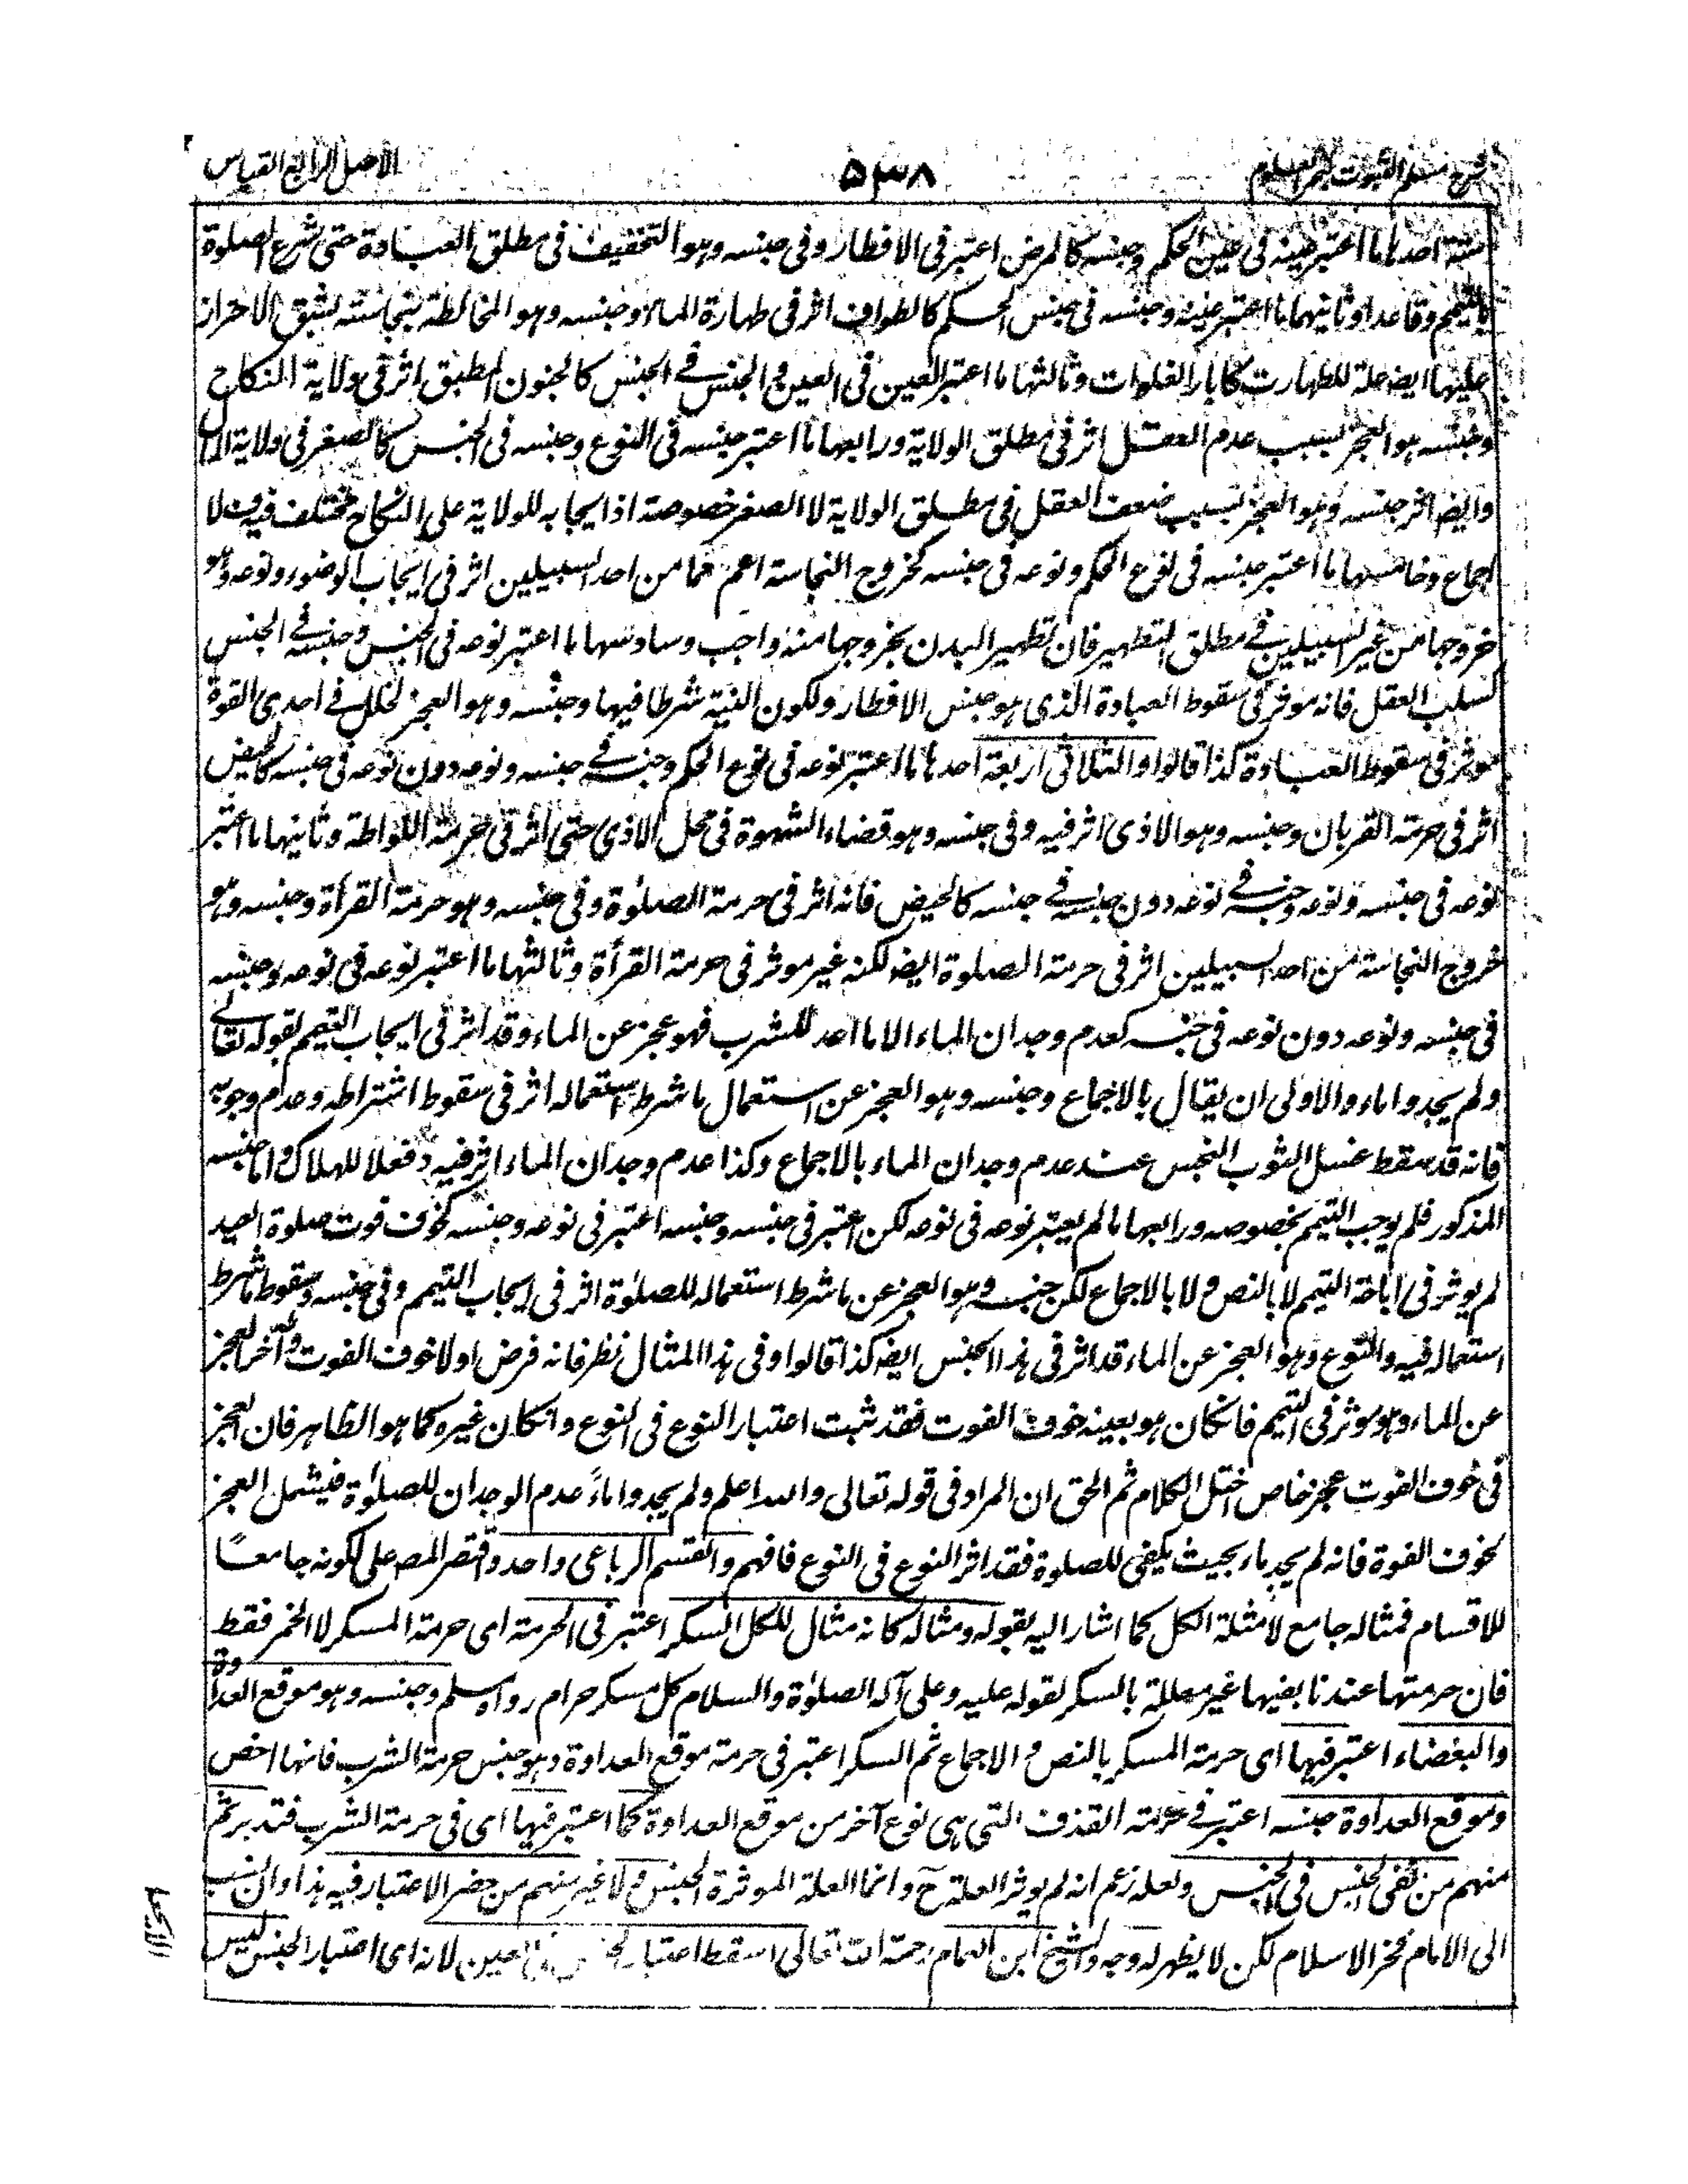 شرح مسلم الثبوت لبحر العلوم ۵۳۸ الاصل الرابع القياس
ستة احدها ما اعتبر عينه فى عين الحكم وجنسه كالمرض اعتبر فى الافطار وفى جنسه وهو التخفيف فى مطلق العبادة حتى شرع الصلوة
بالتيمم وقاعدا وثانيهما ما اعتبر عينه وجنسه فى جنس الحكم كالطواف اثر فى طهارة الماء وجنسه وهو المخالطة بنجاسته يشق الاحتراز
عليها ايضا علة للطهارت كآبار الفلوات وثالثها ما اعتبر العين فى العين والجنس فے الجنس كالجنون المطبق اثر فى ولاية النكاح
وجنسه هو العجز لسبب عدم العقل اثر فى مطلق الولاية ورابعها ما اعتبر جنسه فى النوع وجنسه فى الجنس كالصغر فى ولاية المال
وايضا اثر جنسه وهو العجز بسبب ضعف العقل فى مطلق الولاية لا الصغر خصوصه اذ ايجابه للولاية على النكاح مختلف فيه ولا
اجماع وخامسها ما اعتبر جنسه فى نوع الحكم ونوعه فى جنسه كخروج النجاسة اعم مما من احد السبيلين اثر فى ايجاب الوضوء ونوعه وهو
خروجها من غير السبيلين فے مطلق التطهير فان تطهير البدن بخروجها منه واجب وسادسها ما اعتبر نوعه فى الجنس وجنسه فے الجنس
كسلب العقل فانه موثر فى سقوط العبادة الذى هو جنس الافطار ولكون النية شرطا فيها وجنسه وهو العجز لخلل فے احدى القوة
موثر فى سقوط العبادة كذا قالوا والثلاثى اربعة احدها ما اعتبر نوعه فى نوع الحكم وجنسه فے جنسه ونوعه دون نوعه فى جنسه كالحيض
اثر فى حرمة القربان وجنسه وهو الاذى اثر فيه وفى جنسه وهو قضاء الشهوة فى محل الاذى حتى اثر فى حرمة اللواطة وثانيها ما اعتبر
نوعه فى جنسه ونوعه وجنسه فے نوعه دون جنسه فے جنسه كالحيض فانه اثر فى حرمة الصلوٰة وفى جنسه وهو حرمة القرأة وجنسه وهو
خروج النجاسة من احد السبيلين اثر فى حرمة الصلوة ايضا لكنه غير موثر فى حرمة القرأة وثالثها ما اعتبر نوعه فى نوعه وجنسه
فى جنسه ونوعه دون نوعه فى جنسه كعدم وجدان الماء الا ما اعد للشرب فهو عجز عن الماء وقد اثر فى ايجاب التيمم لقوله تعالى
ولم يجدوا ماء والاولى ان يقال بالاجماع وجنسه وهو العجز عن استعمال ما شرط استعماله اثر فى سقوط اشتراطه وعدم وجوبه
فانه قد سقط غسل الثوب النجس عند عدم وجدان الماء بالاجماع وكذا عدم وجدان الماء اثر فيه دفعا للهلاك واما جنسه
المذكور فلم يوجب التيمم بخصوصه ورابعها ما لم يعتبر نوعه فى نوعه لكن اعتبر فى جنسه وجنسه اعتبر فى نوعه وجنسه كخوف فوت صلوة العيد
لم يوثر فى اباحة التيمم لا بالنص ولا بالاجماع لكن جنسه وهو العجز عن ما شرط استعماله للصلوٰة اثر فى ايجاب التيمم وفى جنسه وسقوط ما شرط
استعماله فيه والنوع وهو العجز عن الماء قد اثر فى هذا الجنس ايضا كذا قالوا وفى هذا المثال نظر فانه فرض اولا خوف الفوت وآخرا العجز
عن الماء وهو موثر فى التيمم فانكان هو بعينه خوف الفوت فقد ثبت اعتبار النوع فى النوع وانكان غيره كما هو الظاهر فان العجز
فى خوف الفوت عجز خاص اختل الكلام ثم الحق ان المراد فى قوله تعالى والله اعلم ولم يجدوا ماءً عدم الوجدان للصلوٰة فيشمل العجز
كخوف الفوة فانه لم يجد ماء بحيث يكفى للصلوة فقد اثر النوع فى النوع فافهم والقسم الرباعى واحد واقتصر المصـ على لكونه جامعًا
للاقسام فمثاله جامع لامثلة الكل كما اشار اليه بقوله ومثاله كانه مثال للكل السكر اعتبر فى الحرمة اى حرمة المسكر لا الخمر فقط
فان حرمتها عندنا بعينها غير معللة بالسكر لقوله عليه وعلى آله الصلوٰة والسلام كل مسكر حرام رواه مسلم وجنسه وهو موقع العداوة
والبغضاء اعتبر فيها اى حرمة المسكر بالنص و الاجماع ثم السكر اعتبر فى حرمة موقع العداوة وهو جنس حرمة الشرب فانها اخص
وموقع العداوة جنسه اعتبر فے حرمة القذف التى هى نوع آخر من موقع العداوة كما اعتبر فيها اى فى حرمة الشرب فتدبر ثم
منهم من نفى الجنس فى الجنس ولعله زعم انه لم يوثر العلة ح وانما العلة الموثرة الجنس ولا غير منهم من حصر الاعتبار فيه هذا وان نسب
الى الامام فخر الاسلام لكن لا يظهر له وجه والشيخ ابن الهمام رحمة الله تعالى اسقط اعتبار العين لانه اى اعتبار الجنس ليس